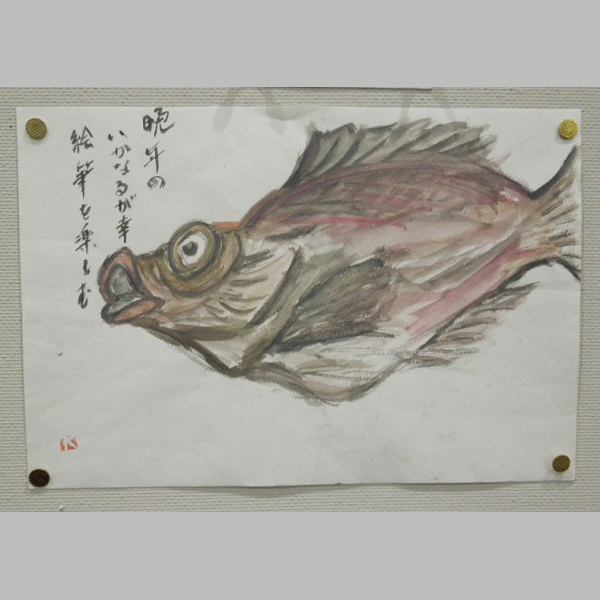 晩年の
いかなるが幸
絵筆を楽しむ